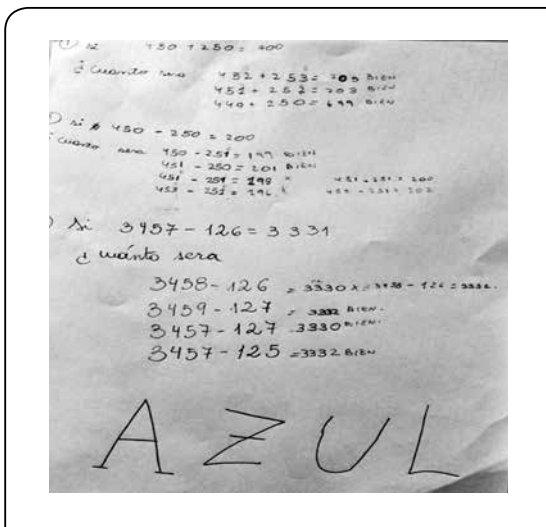 ① si 450 + 250 = 700
¿ Cuanto sera 452 + 253 = 705 BIEN
451 + 252 = 703 BIEN
440 + 250 = 699 BIEN
) si 450 - 250 = 200
¿ Cuanto sera 450 - 251 = 199 BIEN
451 - 250 = 201 BIEN
451 - 251 = 198 x 451 - 251 = 200
453 - 251 = 196 x 453 - 251 = 202
) Si 3457 - 126 = 3331
¿ cuánto sera
3458 - 126 = 3330 x = 3458 - 126 = 3332.
3459 - 127 = 3332 BIEN.
3457 - 127 3330 BIEN.
3457 - 125 = 3332 BIEN
AZUL